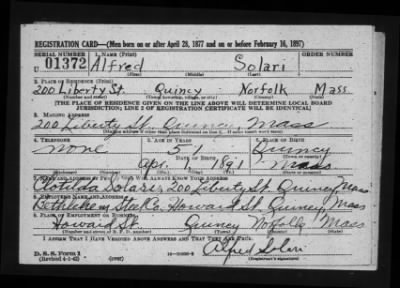 REGISTRATION CARD—(Men born on or after April 28, 1877 and on or before February 16, 1897)
SERIAL NUMBER 1. NAME (Print) ORDER NUMBER
U 01372 Alfred Solari
(First) (Middle) (Last)
2. PLACE OF RESIDENCE (Print)
200 Liberty St. Quincy Norfolk Mass
(Number and street) (Town, township, village, or city) (County) (State)
[THE PLACE OF RESIDENCE GIVEN ON THE LINE ABOVE WILL DETERMINE LOCAL BOARD
JURISDICTION; LINE 2 OF REGISTRATION CERTIFICATE WILL BE IDENTICAL]
3. MAILING ADDRESS
200 Liberty St. Quincy Mass
[Mailing address if other than place indicated on line 2. If same insert word same]
4. TELEPHONE 5. AGE IN YEARS 6. PLACE OF BIRTH
None 51 Quincy
DATE OF BIRTH
Apr. 1 1891 Mass
7. NAME AND ADDRESS OF PERSON WHO WILL ALWAYS KNOW YOUR ADDRESS
200 Liberty St. Quincy Mass
8. EMPLOYER'S NAME AND ADDRESS
Bethlehem Steel Co. Howard St. Quincy Mass
9. PLACE OF EMPLOYMENT OR BUSINESS
Howard St. Quincy Norfolk Mass
(Number and street or R. F. D. number) (Town) (County) (State)
I AFFIRM THAT I HAVE VERIFIED ABOVE ANSWERS AND THAT THEY ARE TRUE.
Alfred Solari
D. S. S. Form 1
(Revised 4-1-42) (over) (Registrant's signature)